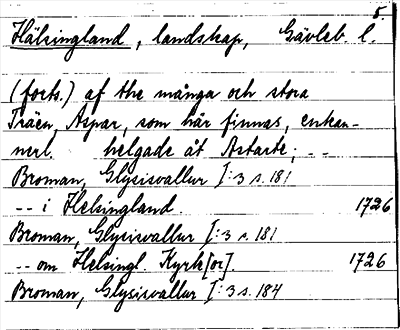 5.
Hälsingland, landskap, Gävleb. l.
(forts.) af the många och stora
Träen, Aspar, som här finnas, enkan-
nerl. helgade åt Astarte; --
Broman, Glysisvallur I:3 s. 181
-- i Helsingland. 1726
Broman, Glysisvallur I:3 s. 181
-- om Helsingl. Kyrk[or]. 1726
Broman, Glysisvallur I:3 s. 184